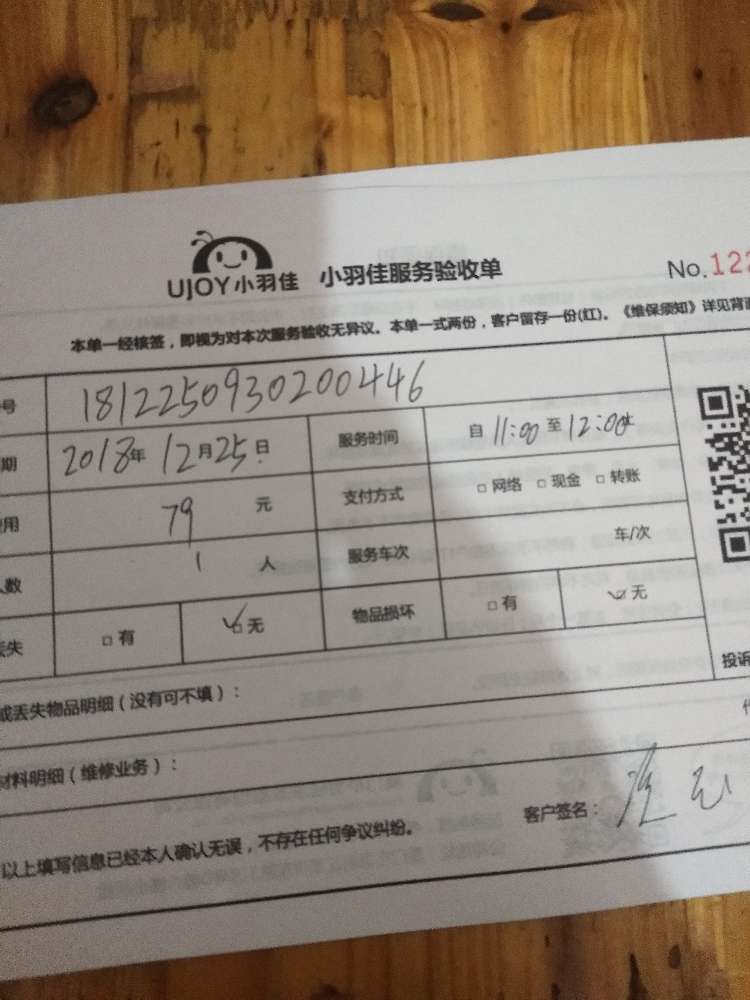 UJOY小羽佳 小羽佳服务验收单 No.122
本单一经核签，即视为对本次服务验收无异议。本单一式两份，客户留存一份(红)。《维保须知》详见背面
号 181225093020044​6
期 2018年12月25日 服务时间 自11:00至12:00止
费用 79 元 支付方式 □网络 □现金 □转账
人数 1 人 服务车次 车/次
丢失 □有 ☑无 物品损坏 □有 ☑无
投诉
或丢失物品明细（没有可不填）：
材料明细（维修业务）：
以上填写信息已经本人确认无误，不存在任何争议纠纷。 客户签名：